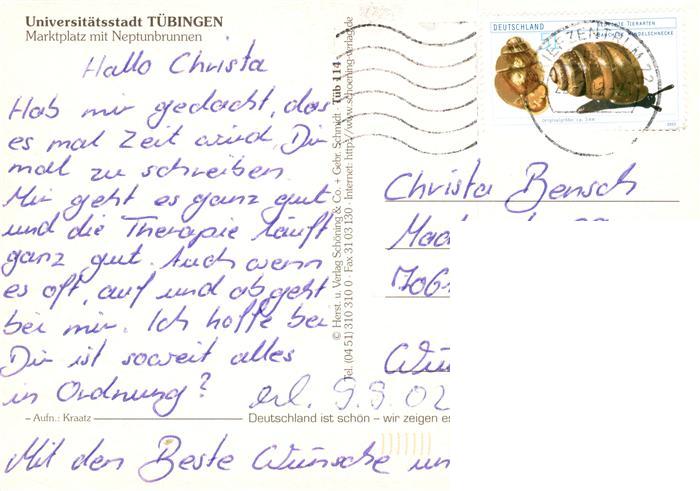 Universitätsstadt TÜBINGEN
Marktplatz mit Neptunbrunnen
Hallo Christa
Hab mir gedacht, das
es mal Zeit wird, Dir
mal zu schreiben.
Mir geht es ganz gut
und die Therapie läuft
ganz gut. Auch wenn
es oft, auf und ab geht
bei mir. Ich hoffe bei
Dir ist soweit alles
in Ordnung?
erl. 9.9.02
– Aufn.: Kraatz –
Deutschland ist schön – wir zeigen es
Mit den Beste Wünsche un
© Herst. u. Verlag Schöning & Co. + Gebr. Schmidt · Tüb 114
Tel. (04 51) 310 310 0 - Fax 31 03 130 - Internet: http://www.schoening-verlag.de
DEUTSCHLAND
Christa Bensch
706
Wün